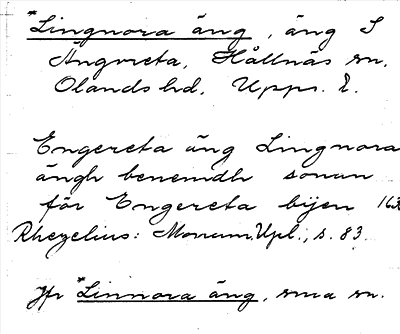 *Lingnora äng, äng S
Ängvreta, Hållnäs sn,
Olands hd, Upps. l.
Engereta äng Lingnora
ängh benemdh sonan
för Engereta bÿen 163
Rhezelius: Monum. Upl., s. 83.
Jfr *Linnora äng, sma sn.